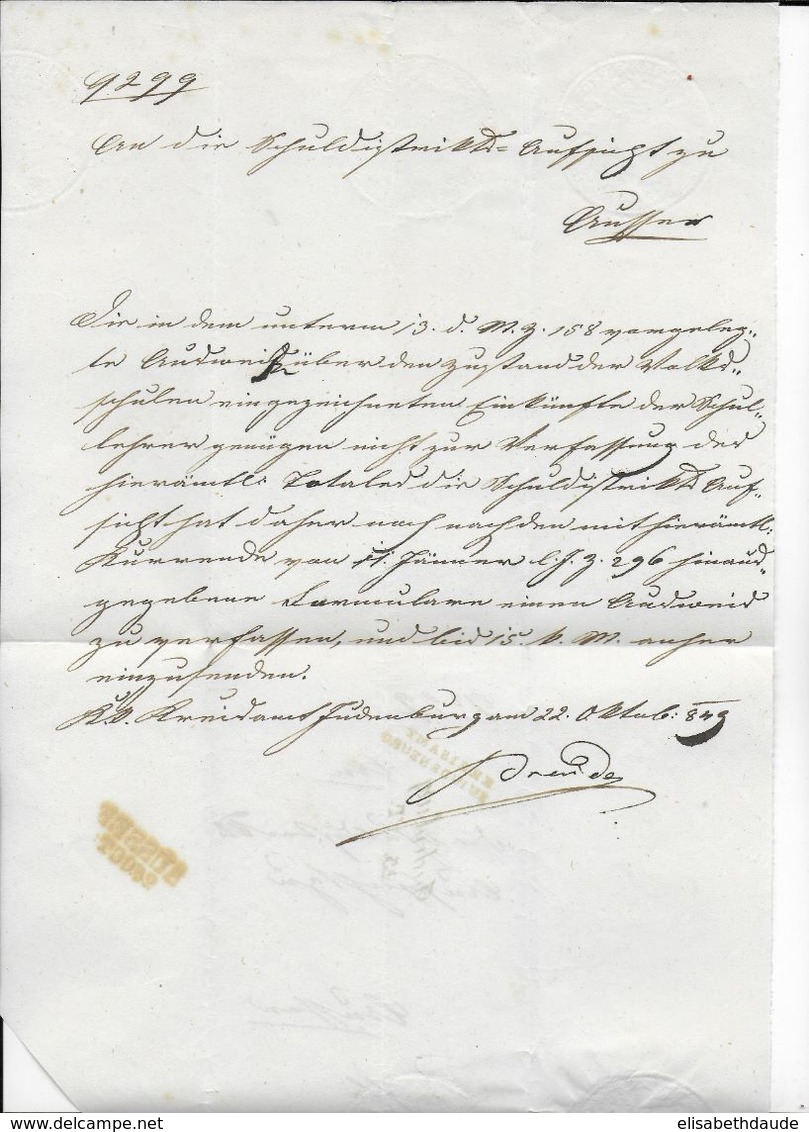 9299
An die Schuldistrikts= Aufsicht zu
Aussee
Die in dem unterm 13. d. M. Z. 158 vorgeleg„
te Ausweis über den Zustand der Volks„
schulen eingezeichneten Einkünfte der Schul„
lehrer genügen nicht zur Verfassung des
hierämtl: Totales die Schuldistrikts Auf„
sicht hat daher noch nach den mit hierämtl:
Kurrende vom 11. Jänner l. J. Z. 296 hinaus„
gegebene Formulare einen Ausweis
zu verfassen, und bis 15. k. M. anher
einzusenden.
K. k. Kreisamt Judenburg am 22. Oktob: 849
elisabethdaude